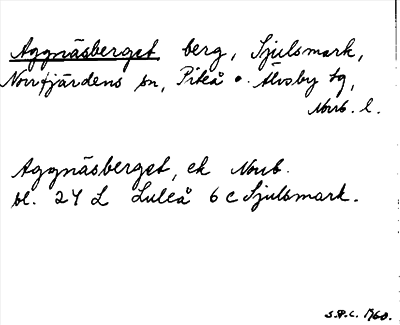 Aggnäsberget, berg, Sjulsmark,
Norrfjärdens sn, Piteå o. Älvsby tg,
Norb. l.
Aggnäsberget, ek Norb.
bl. 24 L Luleå 6 c Sjulsmark.
1960.